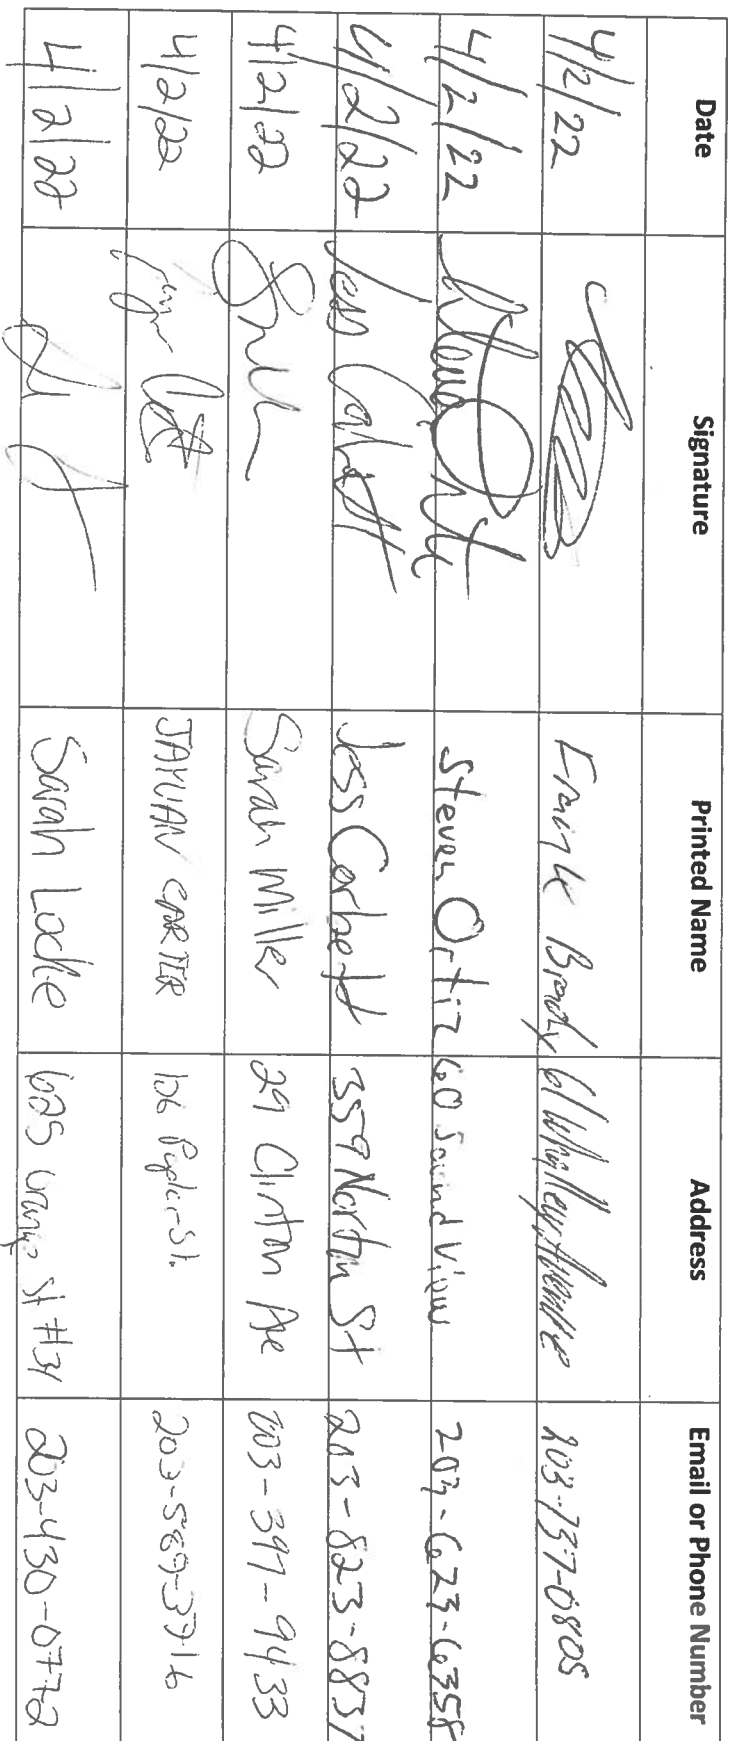 Date Signature Printed Name Address Email or Phone Number
4/2/22 Frank Brady 61 Whalley Avenue 203-737-0805
4/2/22 Steven Ortiz Steven Ortiz 60 Sound View 203-623-6358
4/2/22 Jess Corbett Jess Corbett 359 North St 203-823-8837
4/2/22 Sarah Miller 29 Clinton Ave 203-397-9433
4/2/22 JAYUAN CARTER 106 St. 203-589-3716
4/2/22 Sarah Locke 625 Orange St #31 203-430-0772